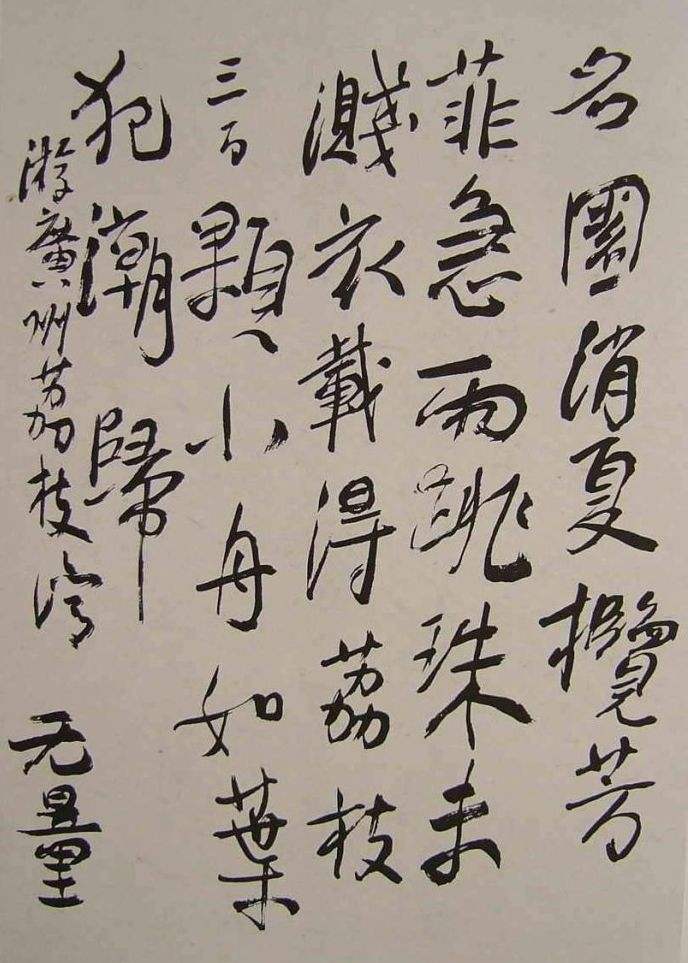 名園消夏攬芳
菲急雨跳珠未
濺衣載得荔枝
三百顆小舟如葉
犯潮歸
游廣州荔枝灣　无量